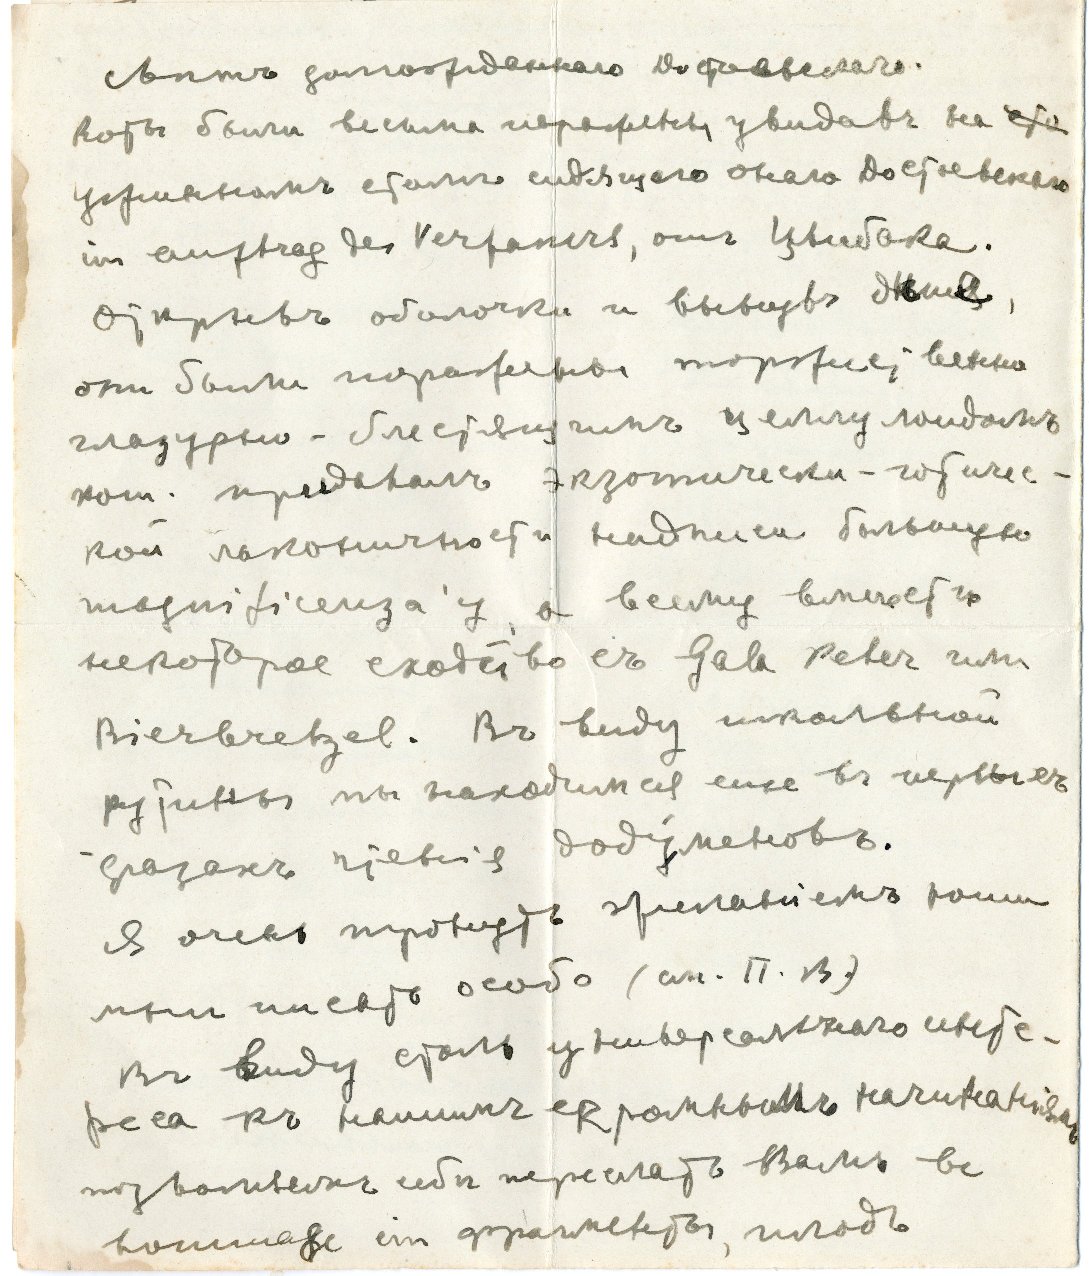 долгожданнаго Достоевскаго.
Коты были весьма поражены, увидавъ на
ужинномъ столѣ сидящаго онаго Достоевскаго
im auftrag des Verfassers, отъ Цвибака.
Открывъ оболочки и вынувъ
они были поражены торжественно
глазурью-блестящимъ целлулоидомъ
кот. придавалъ экзотически-готичес-
кой лаконичности надписи большую
magnificenza'у, а всему вмѣстѣ
некоторое сходство съ Gala Peter или
Bierbretzel. Въ виду школьной
рутины мы находимся еще въ первыхъ
фазахъ чтенія
Я очень тронутъ желаніемъ
писать особо (см. П. В.)
Въ виду столь универсальнаго инте-
реса къ нашимъ скромнымъ начинаніямъ
позволяемъ себѣ переслать Вамъ
hommage im фрагменты, плодъ